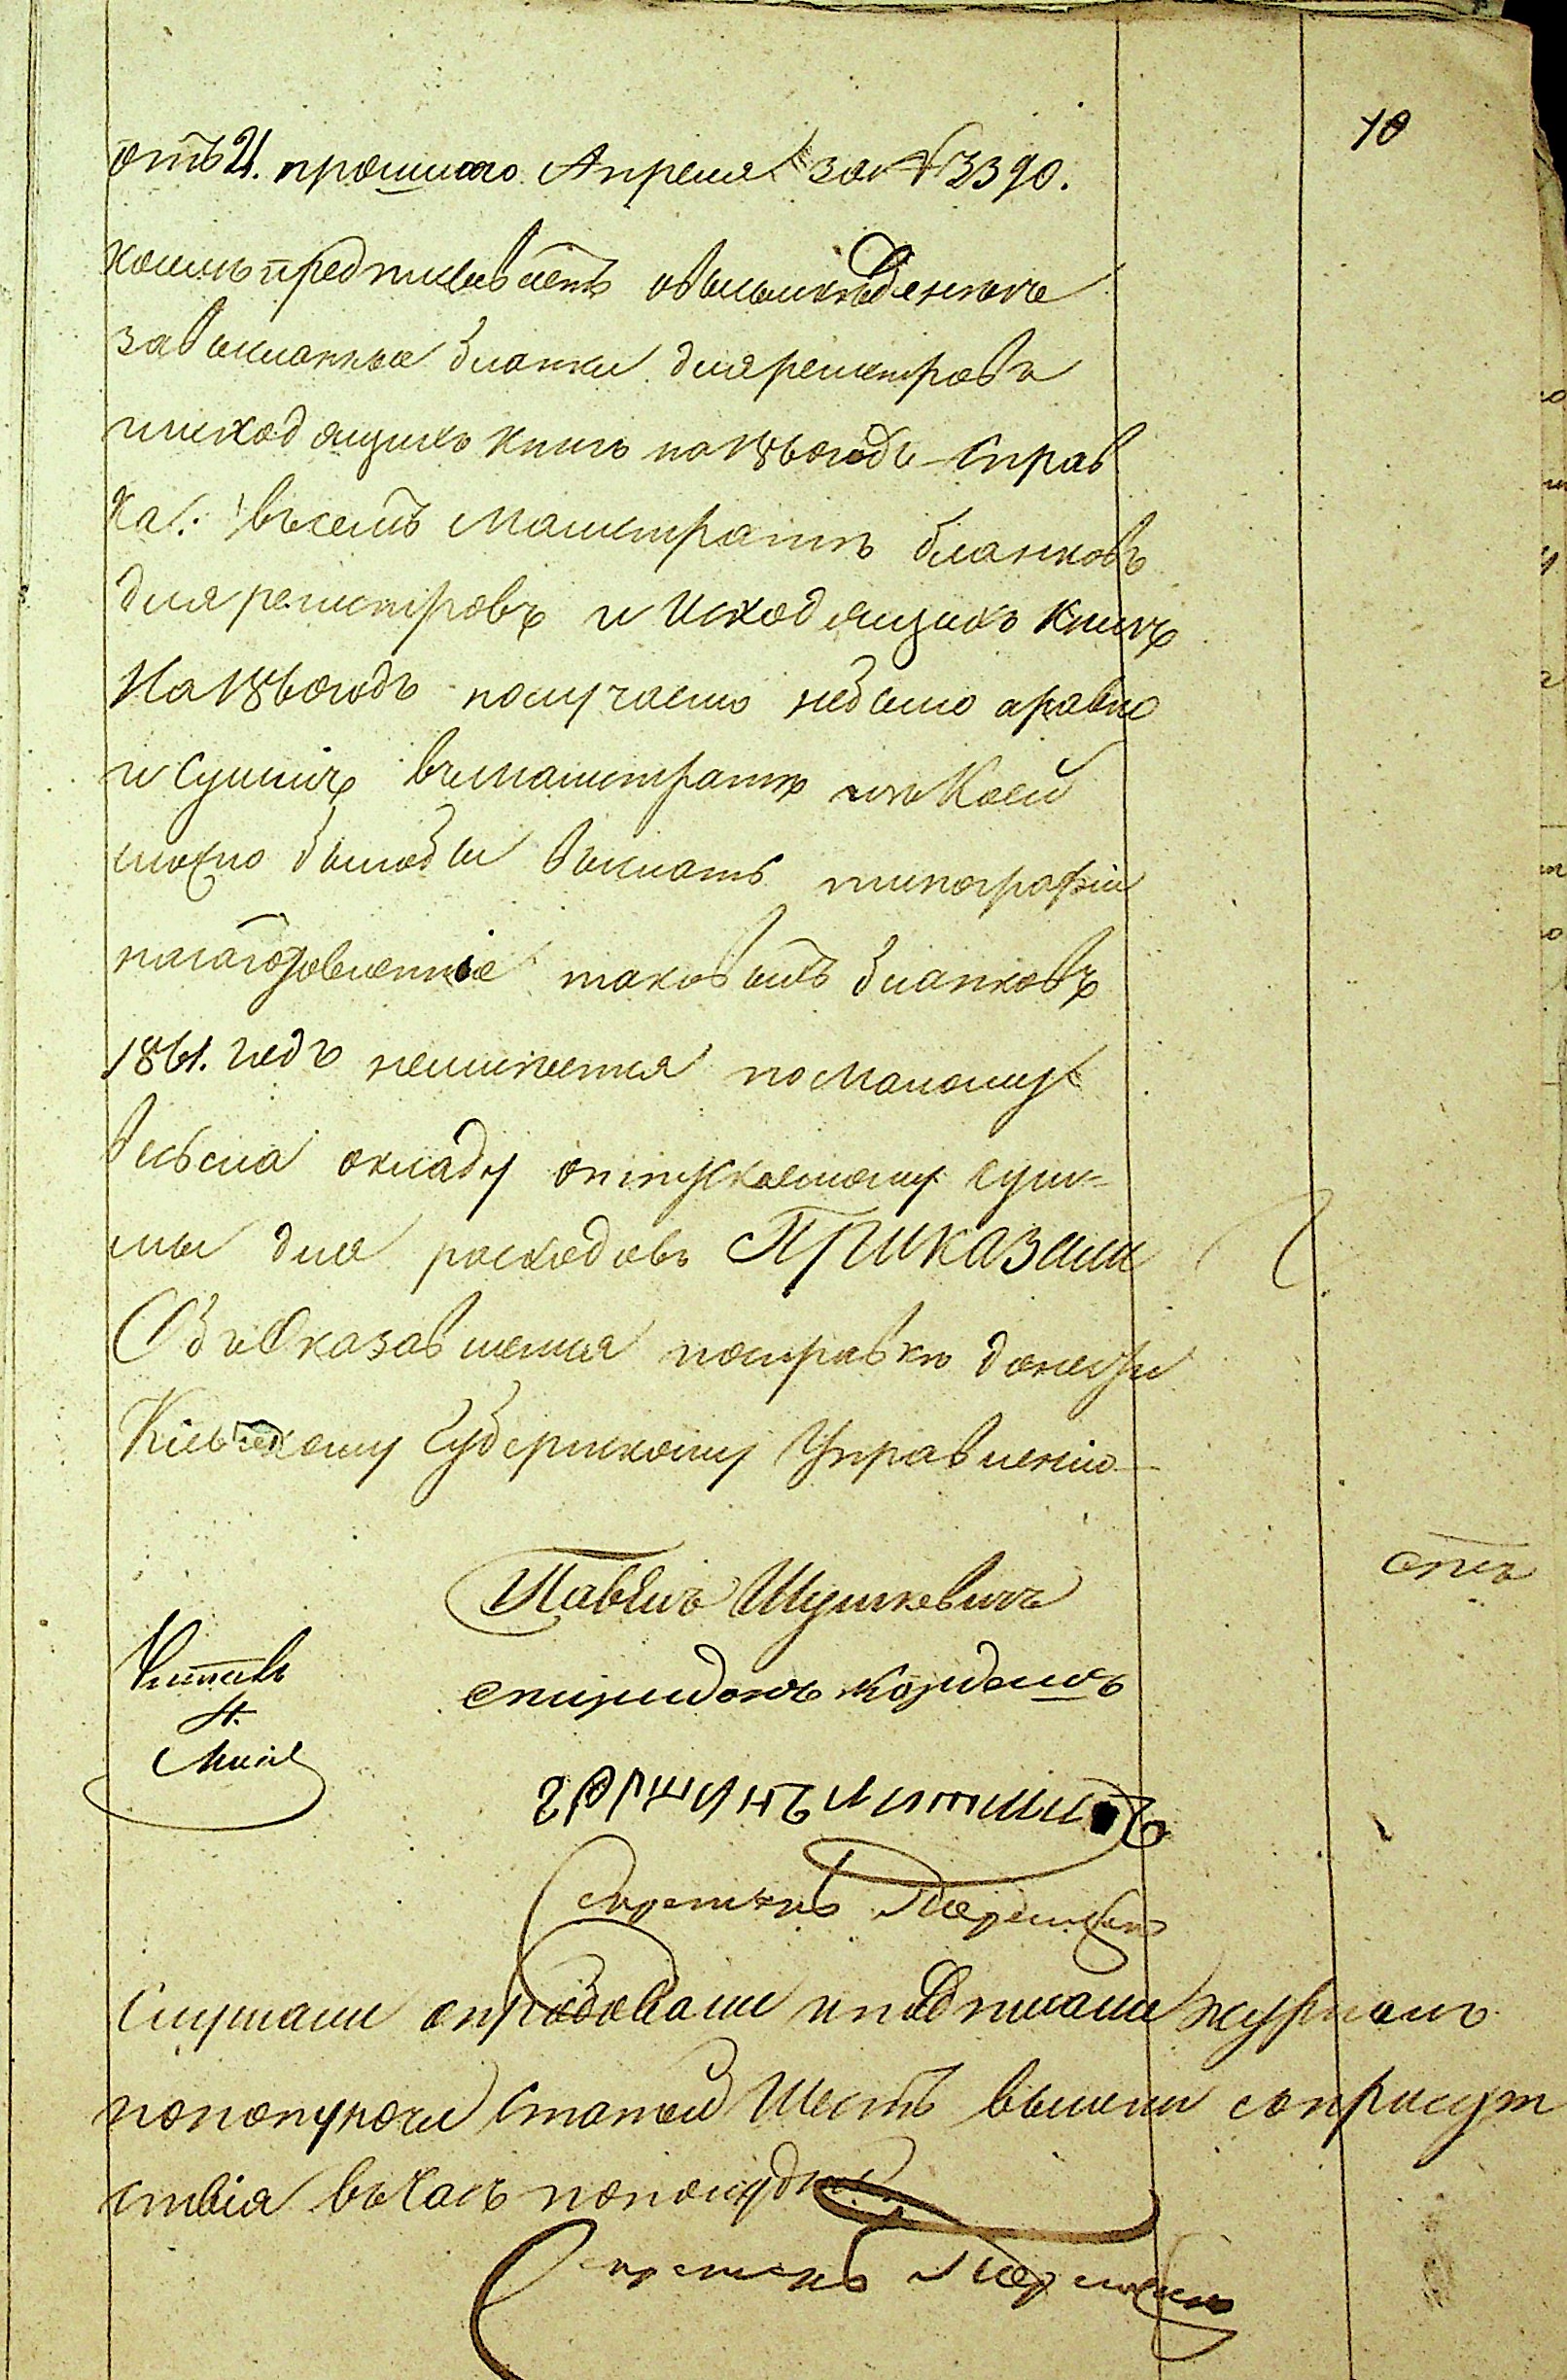 10
отъ 21. прошлаго Апреля за № 3390.
коимъ предписываетъ овысылкѣ денегъ
завысланные бланки для регистровъ
иисходящихъ книгъ на 1860 годъ Справ
ка: Въсемъ Магистратѣ бланковъ
для регистровъ и Исходящихъ книгъ
На 1860 годъ получаемо небыло аравно
и суммъ вмагистратѣ изъ коей
можно былобы выслать типографіи
назаготовленніе таковыхъ бланковъ
1861. годъ неимѣется по малому
весьма окладу отпускаемому сум-
мы для расходовъ Приказали
Объ Оказавшемся посправкѣ донести
Кіевскому Губернскому Управленію
Павелъ
Спиридонъ
Читалъ
Секретарь
Слушали опробовали иподписали журналъ
пополуночи Статей Шесть вышли съприсут
ствія въ часъ пополудни
Секретарь